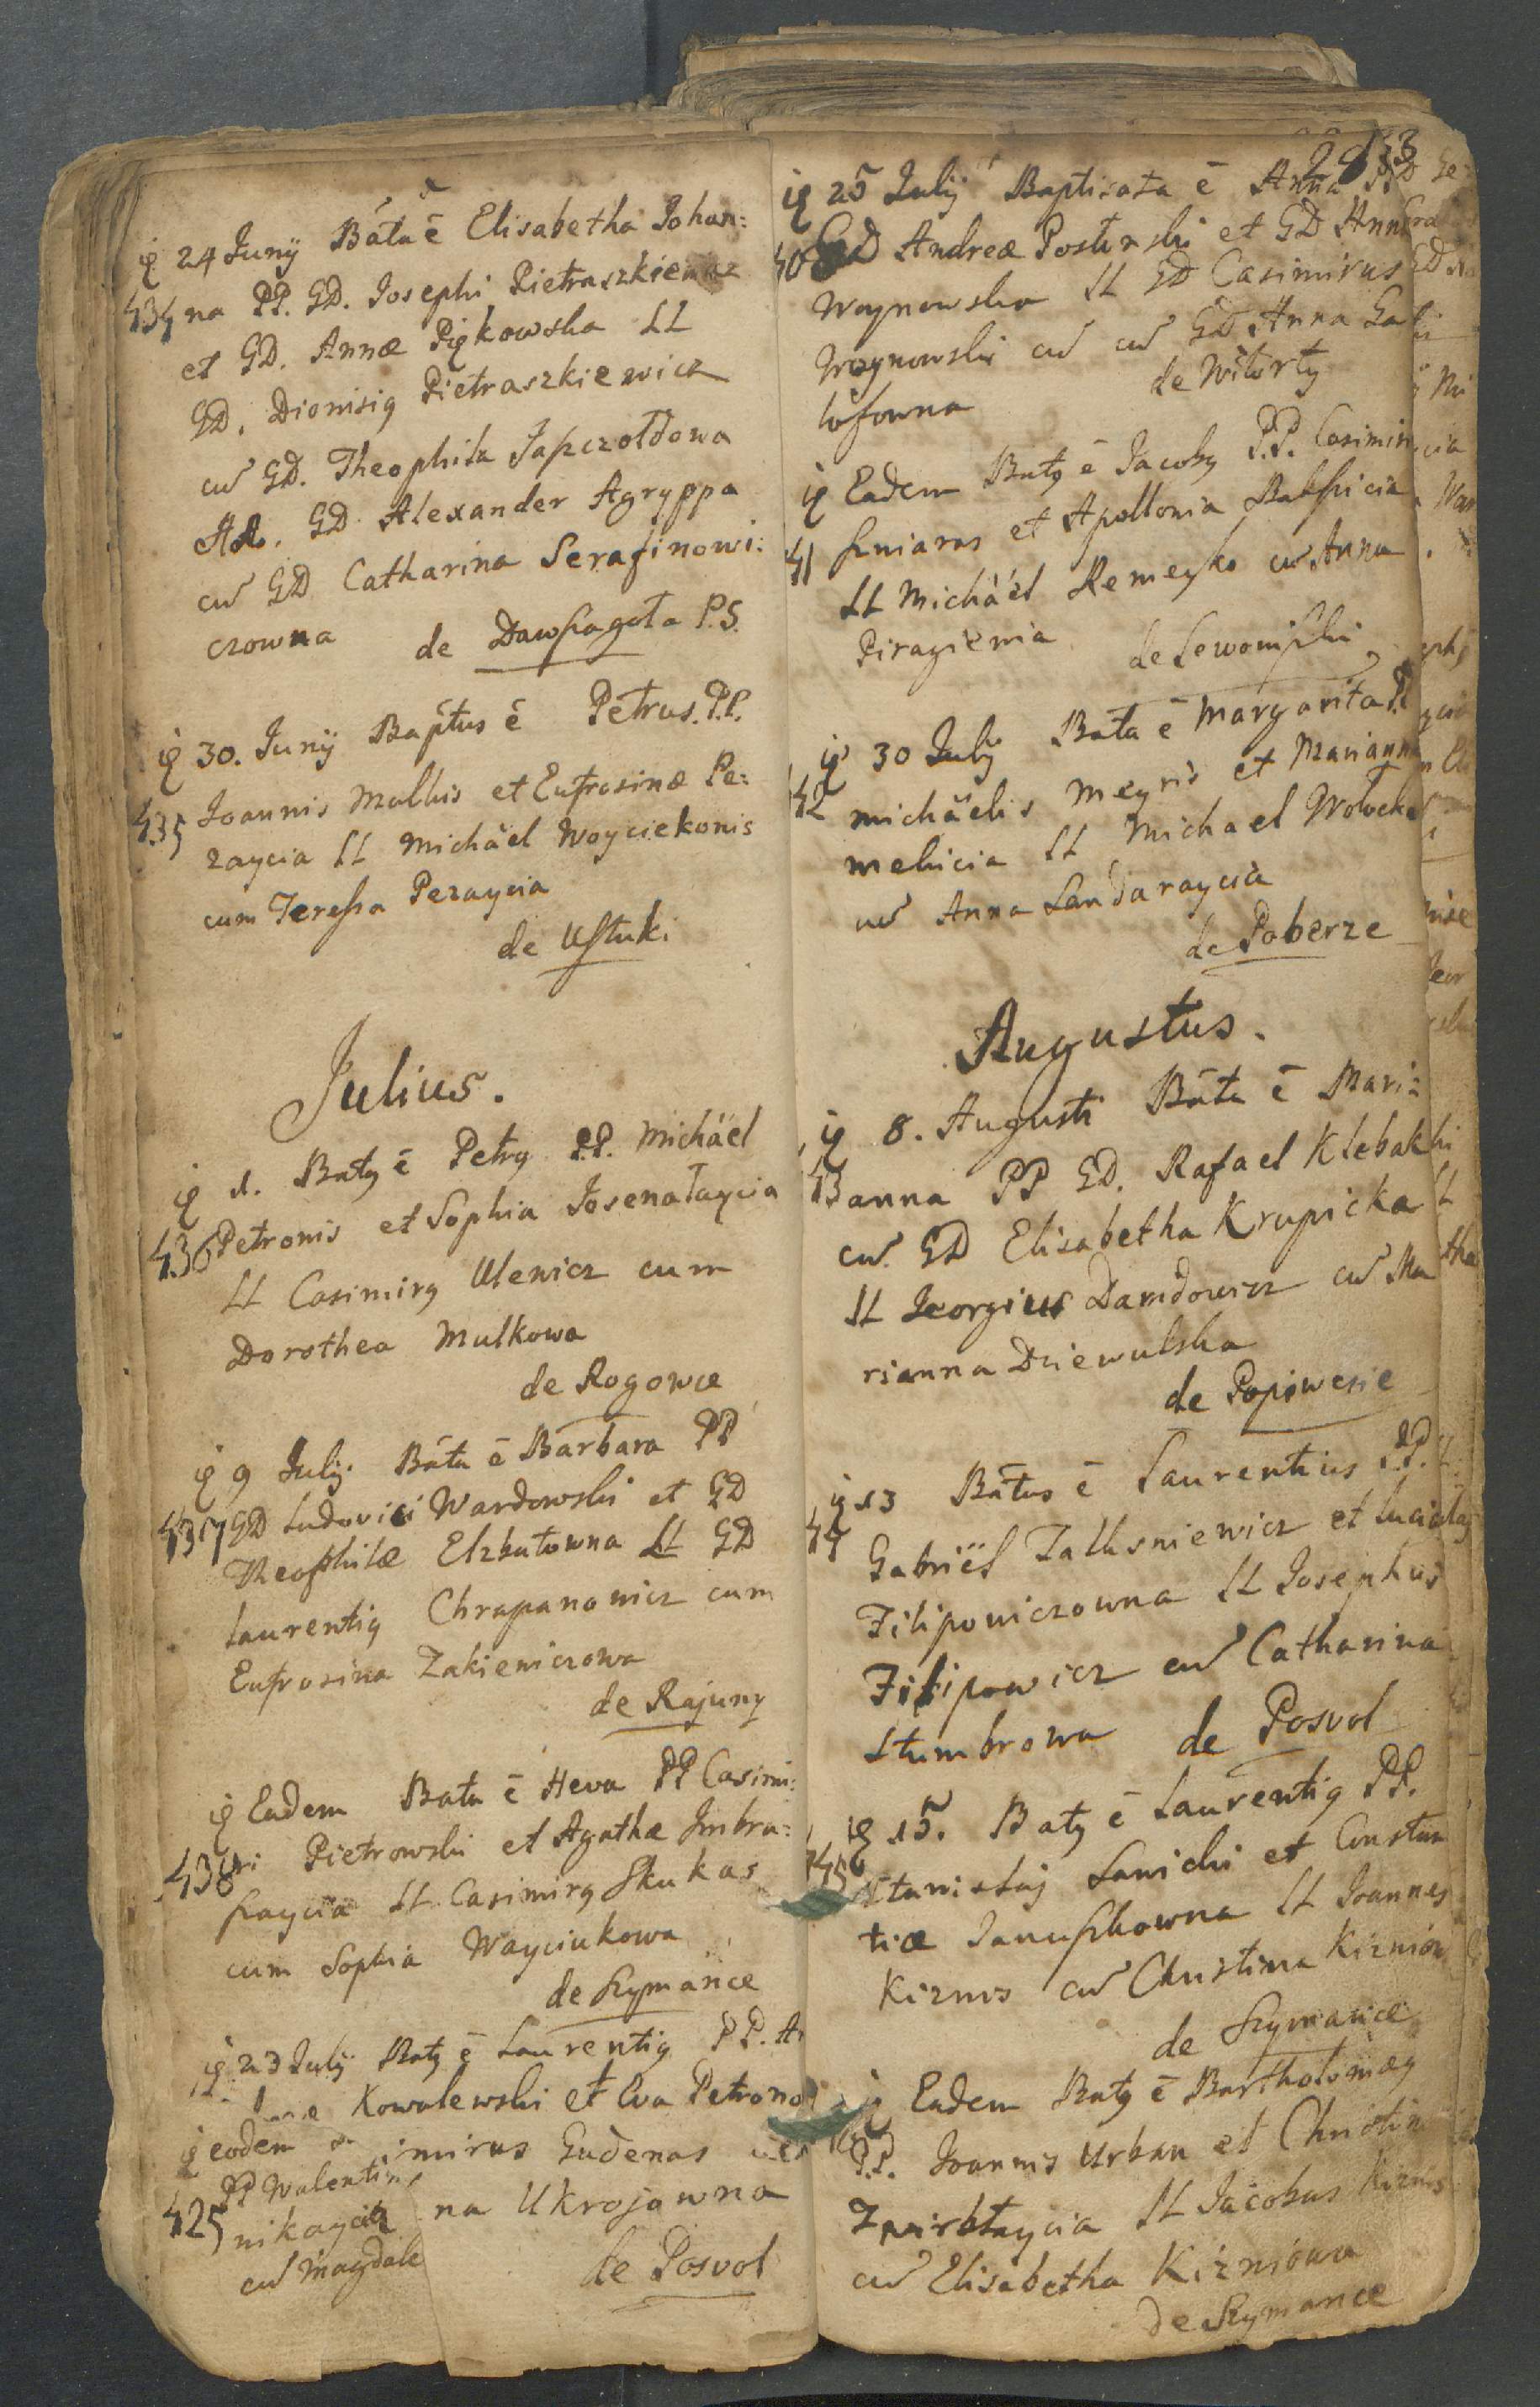 24 Junÿ Bata ē Elisabetha Johan:
434 na PP. GD. Josephi Pietraszkiewicz
et GD. Annæ Pigkowska LL
GD. Dionisiq Pietraszkiewicz
cu GD. Theophila Japszoltowa
GD. Alexander Agryppa
cu GD Catharina Serafinowi:
czowna de Dawszagoła P.S.
30. Junÿ Baptus ē Petrus. P.P.
435 Joannis Malhis et Eufrosinæ Pe:
zaycia LL Michäel Woyciekonis
cum Teressa Pezaycia
de Ustuki
Julius.
1. Batq ē Petrq P.P. Michäel
436 Petronis et Sophia Josenałaycia
LL Casimirq Ulewicz cum
Dorothea Mulkowa
de Rogowce
9 July. Bata ē Barbara PP
437 GD Ludovici Wardowski et GD
Theophilæ Elzbutowna LL GD
Laurentiq Chrapanowicz cum
Eufrosina Zakiewiczowa
de Rajuny
Eadem Bata ē Heva PP Casimi:
438 ri Pietrowski et Agathæ Imbra:
szaycia LL Casimirq Skukas
cum Sophia Wayciukowa
de Szymance
23 Julÿ Batq ē Laurentiq PP. A
Kowalewski et Eva Petrono
eodem imirus Gudenas
PP Walentin
425 nikaycia na Ukrojowna
cu Magdale de Posvol
28 133
25 Julÿ Baptisata ē Anna PP
GD Andreæ Posturski et GD Anna
Woynowska LL GD Casimirus
Woynowski cu cu GD Anna Ga
łofowna de Witorty
Eadem Batq ē Jacobq P.P. Casimir
41 szniaras et Apollonia Balszicia
LL Michäel Remeyko cu Anna
Piragienia de Lewoniszki
30 Julÿ Bata ē Margarita PP
42 Michäelis Meyris et Marianna
mekicia LL Michael Wolocka
cu Anna Sandaraycia
de Poberze
Augustus.
8. Augusti Bata ē Mari:
13 anna PP GD. Rafael Klebak
cu GD Elisabetha Krupicka
LL Georgius Davidowicz cu Ma
rianna Dziewulska
de Popiwesie
13 Batus ē Laurentius P.P.
44 Gabriël Zalkusniewicz et Lucia
Filipowiczowna LL Josephus
Filipowicz cu Catharina
Stumbrowa de Posvol
15. Batq ē Laurentiq PP.
45 Stanislaj Sawicki et Constan
tiæ Januszkowna LL Joannes
Kiznis cu Christina Kizniow
de Szymance
Eadem Batq ē Bartholomæq
P.P. Joannis Urban et Christin
Zwirblaycia LL Jacobus Kiznis
cu Elisabetha Kizniowa
de Szymance